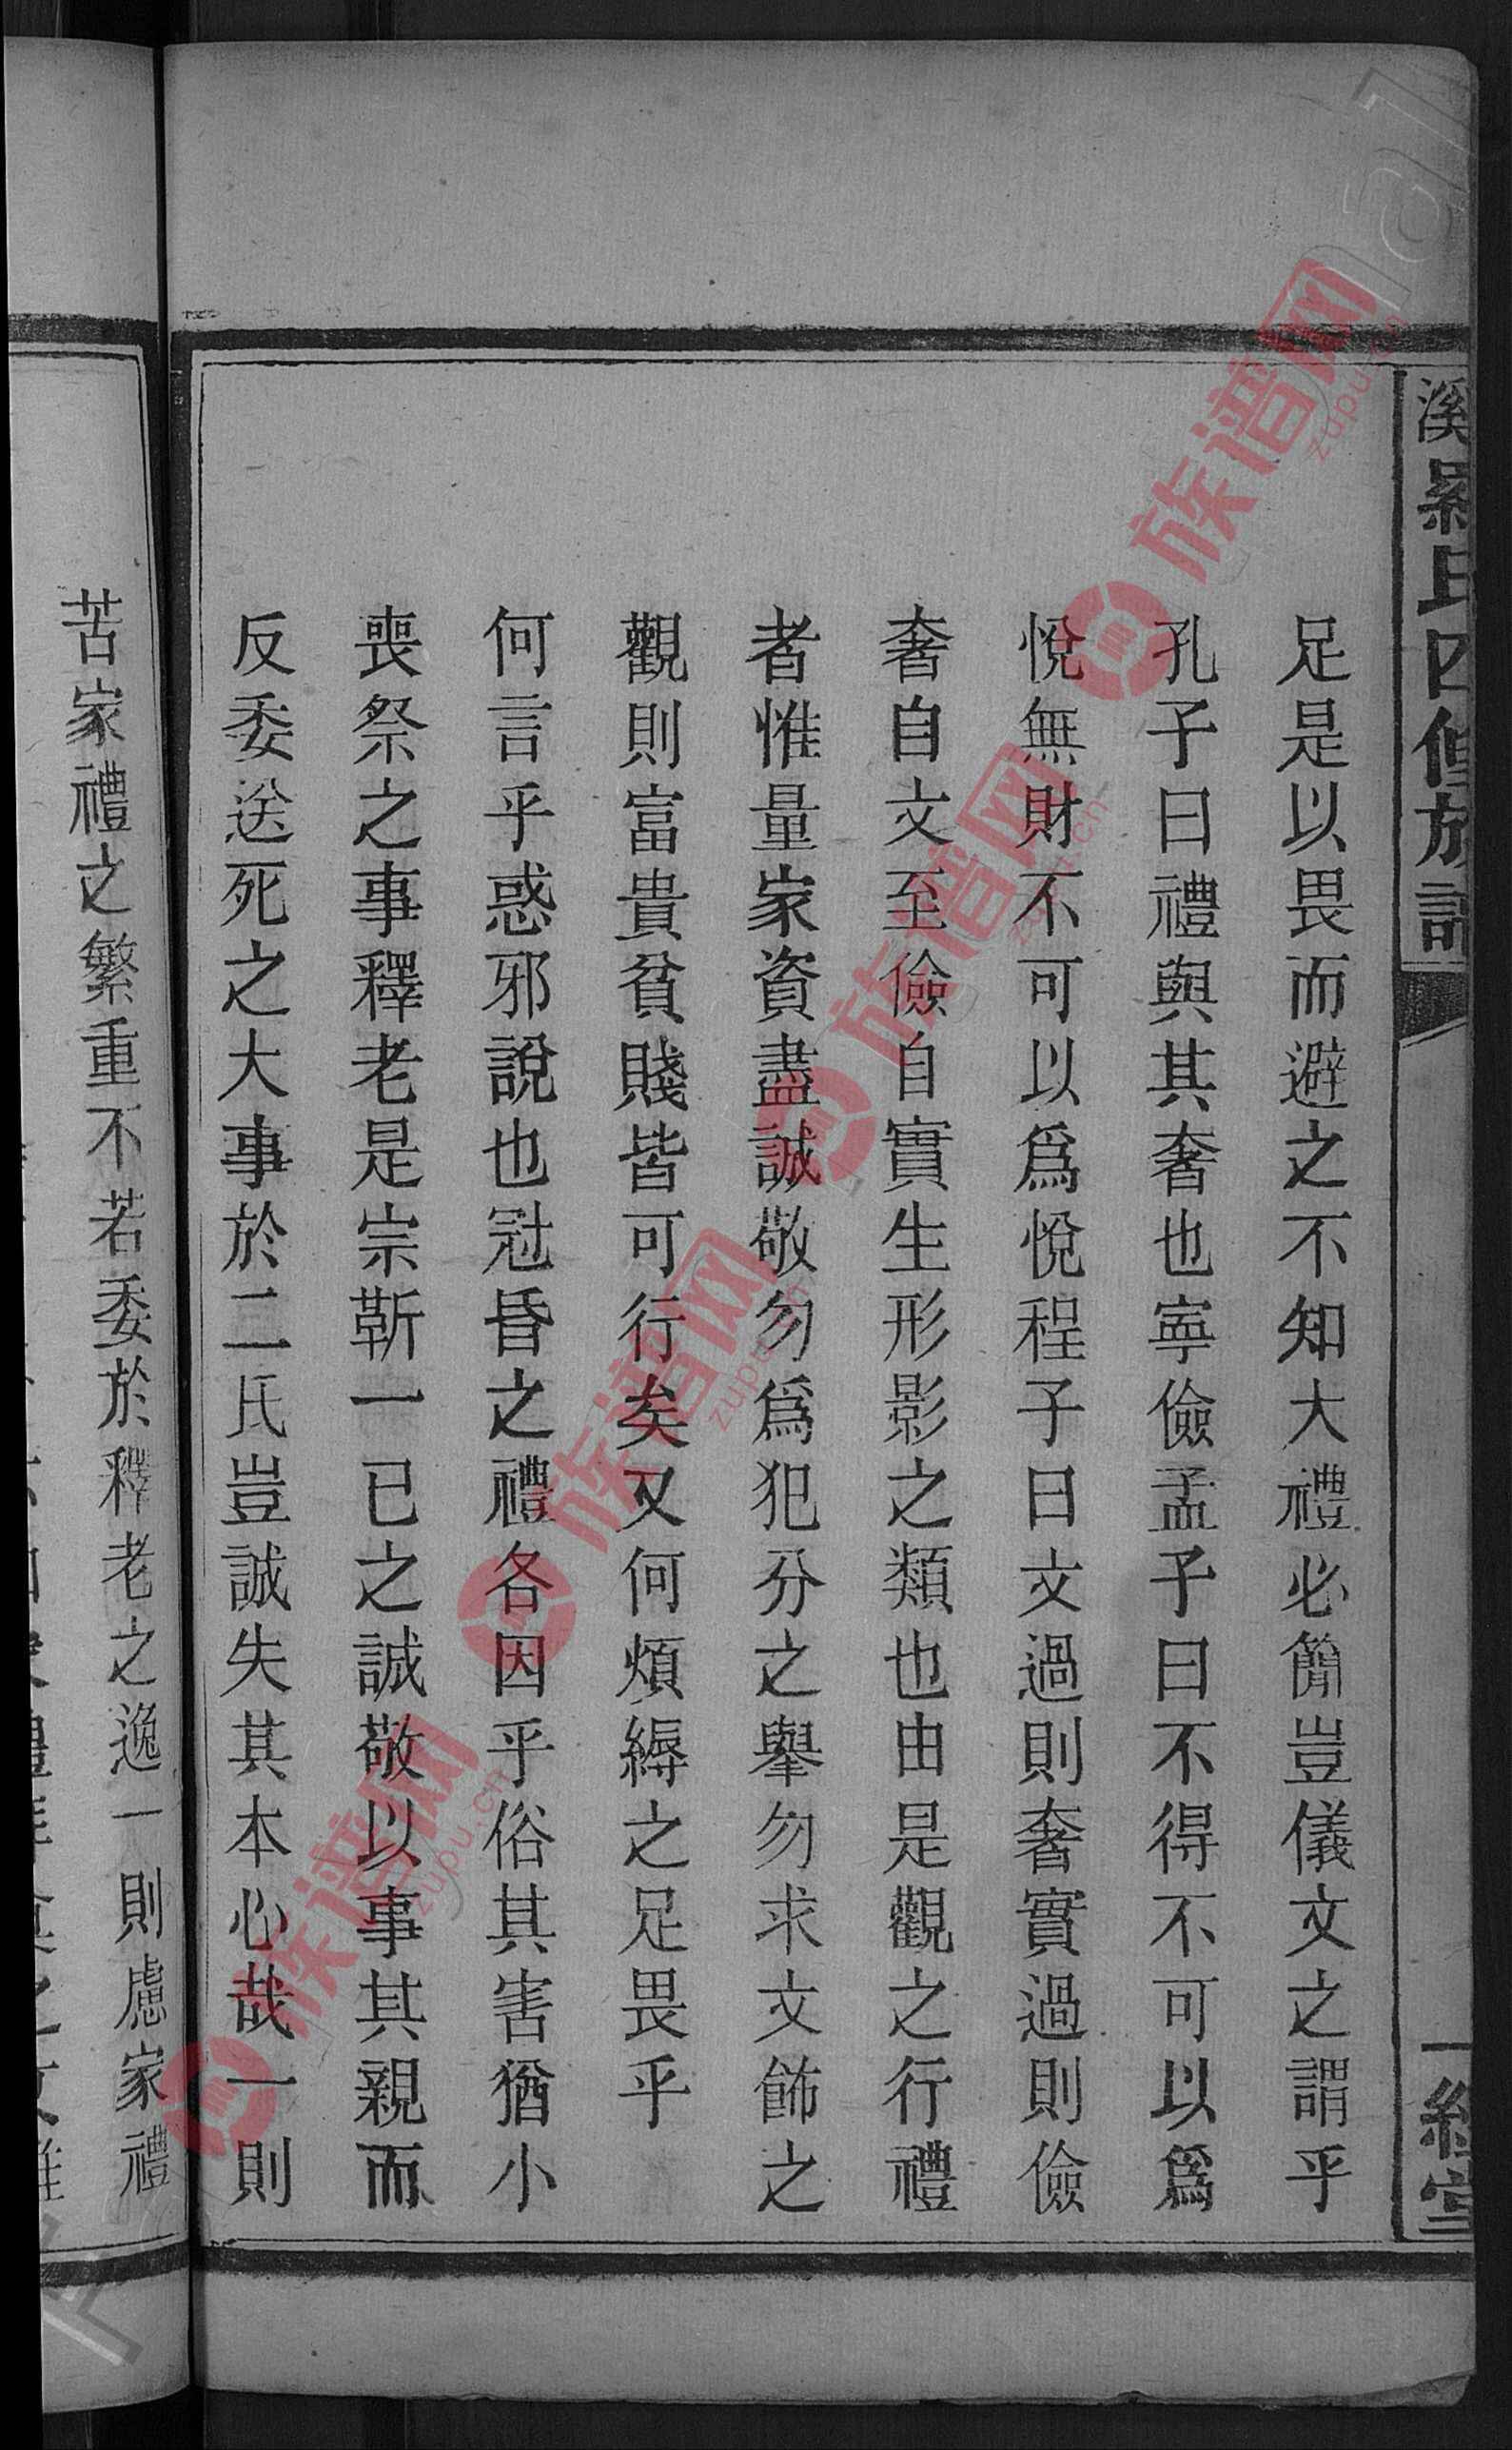 溪羅氏四修族譜
一經堂
足是以畏而避之不知大禮必簡豈儀文之謂乎
孔子曰禮與其奢也寧儉孟子曰不得不可以爲
悅無財不可以爲悅程子曰文過則奢實過則儉
奢自文至儉自實生形影之類也由是觀之行禮
者惟量家資盡誠敬勿爲犯分之舉勿求文飾之
觀則富貴貧賤皆可行矣又何煩縟之足畏乎
何言乎惑邪說也冠昏之禮各因乎俗其害猶小
喪祭之事釋老是宗靳一已之誠敬以事其親而
反委送死之大事於二氏豈誠失其本心哉一則
苦家禮之繁重不若委於釋老之逸一則慮家禮
族谱网
zupu.cn
族谱网
zupu.cn
族谱网
zupu.cn
族谱网
zupu.cn